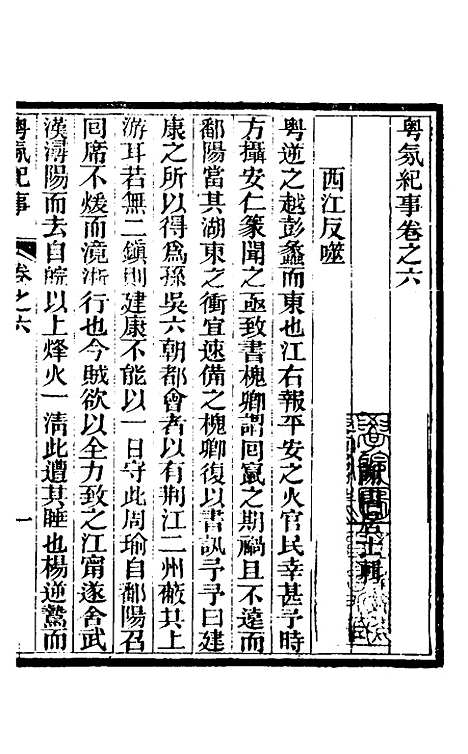 粤氛紀事卷之六
居士輯
西江反噬
粤逆之越彭蠡而東也江右報平安之火官民幸甚予時
方攝安仁篆聞之亟致書槐卿謂回竄之期禍且不遠而
鄱陽當其湖東之衝宜速備之槐卿復以書訊予予曰建
康之所以得爲孫吳六朝都會者以有荆江二州蔽其上
游耳若無二鎮則建康不能以一日守此周瑜自鄱陽召
回席不煖而滰浙行也今賊欲以全力致之江甯遂舍武
漢潯陽而去自皖以上烽火一淸此遭其睡也楊逆鷙而
粤氛紀事
卷之六
一